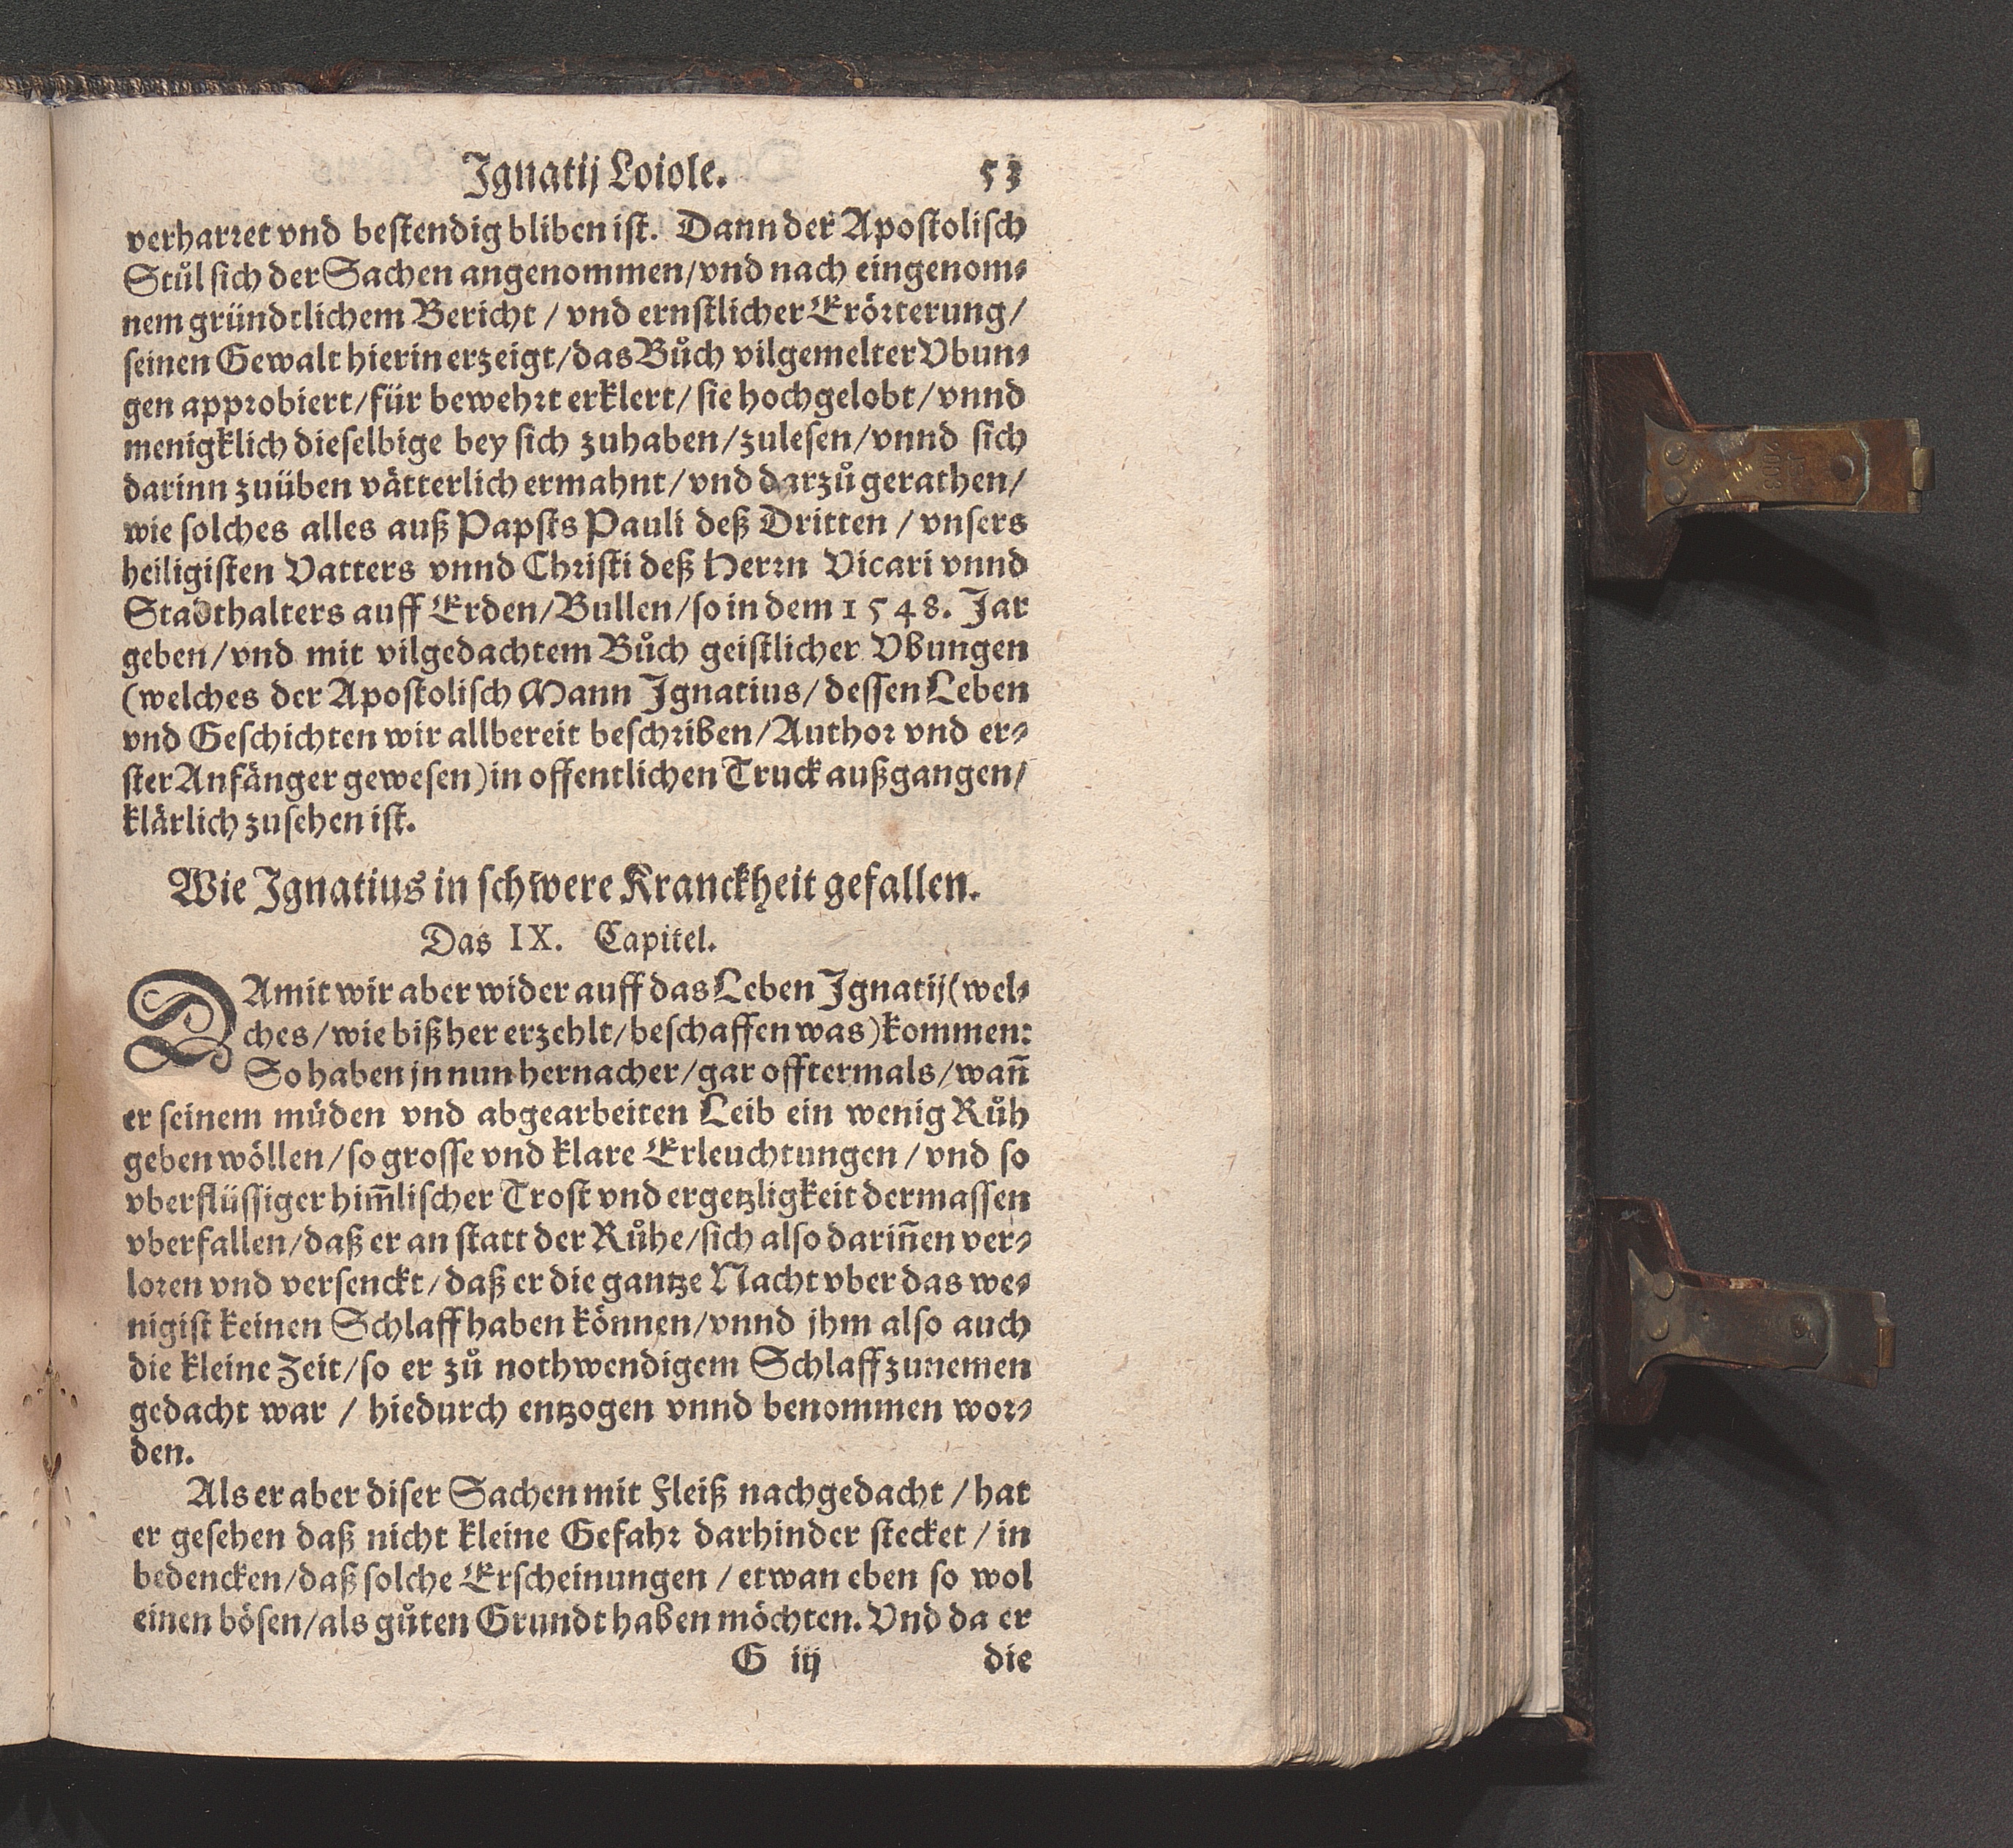 Ignatij Loiole. 53
verharret vnd bestendig bliben ist. Dann der Apostolisch
Stůl sich der Sachen angenommen/vnd nach eingenom⸗
nem gründtlichem Bericht / vnd ernstlicher Erörterung/
seinen Gewalt hierin erzeigt/das Bůch vilgemelter Vbun⸗
gen approbiert/für bewehrt erklert/sie hochgelobt/vnnd
menigklich dieselbige bey sich zuhaben/zulesen/vnnd sich
darinn zuüben vätterlich ermahnt/vnd darzů gerathen/
wie solches alles auß Papsts Pauli deß Dritten / vnsers
heiligisten Vatters vnnd Christi deß Herrn Vicari vnnd
Stadthalters auff Erden/Bullen/so in dem 1548. Jar
geben/vnd mit vilgedachtem Bůch geistlicher Vbungen
(welches der Apostolisch Mann Ignatius/dessen Leben
vnd Geschichten wir allbereit beschriben/Author vnd er⸗
ster Anfänger gewesen) in offentlichen Truck außgangen/
klärlich zusehen ist.
Wie Ignatius in schwere Kranckheit gefallen.
Das IX. Capitel.
DAmit wir aber wider auff das Leben Ignatij (wel⸗
ches/wie bißher erzehlt/beschaffen was) kommen:
So haben jn nun hernacher/gar offtermals/wañ
er seinem müden vnd abgearbeiten Leib ein wenig Růh
geben wöllen/so grosse vnd klare Erleuchtungen/vnd so
vberflüssiger him̃lischer Trost vnd ergetzligkeit dermassen
vberfallen/daß er an statt der Růhe/sich also dariñen ver⸗
loren vnd versenckt/daß er die gantze Nacht vber das we⸗
nigist keinen Schlaff haben können/vnnd jhm also auch
die kleine Zeit/so er zů nothwendigem Schlaff zunemen
gedacht war / hiedurch entzogen vnnd benommen wor⸗
den.
Als er aber diser Sachen mit Fleiß nachgedacht / hat
er gesehen daß nicht kleine Gefahr darhinder stecket / in
bedencken/daß solche Erscheinungen / etwan eben so wol
einen bösen/als gůten Grundt haben möchten. Vnd da er
G iij die